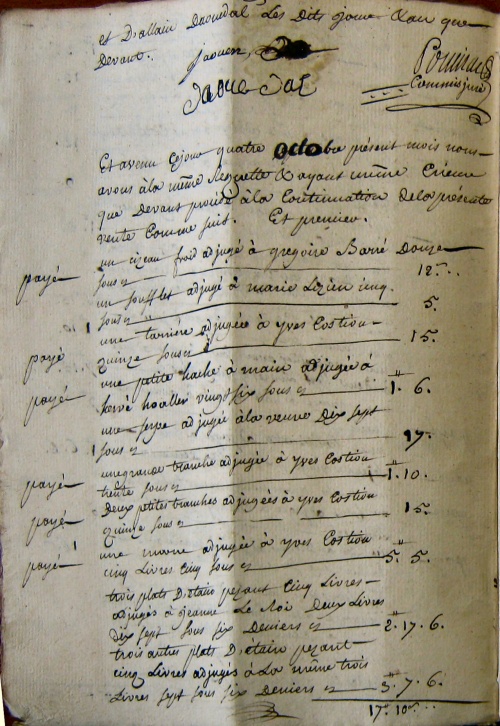 et D'allain Daouedal Les Dits jour & an que
Devant. jaouen
Daoue-Dal
Commis juré
Et avenu ce jour quatre octobre présent mois nous
avons à la même Requette & ayant même Crieur
que Devant procédé à la Continuation de la présente
vente Comme suit. Et premier.
un cizeau froid adjugé à gregoire Barré Douze
payé sous cy 12.
un soufflet adjugé à marie Lezien cinq
sous cy 5.
une tarriere adjugée à yves Costiou
payé quinze sous cy 15.
une petite hache à main adjugée à
payé hervé hoallen vingt six sous cy 1. 6.
une serpe adjugé à la veuve Dix sept
sous cy 17.
une grande tranche adjugée à yves Costiou
payé trente sous cy 1. 10.
Deux petites tranches adjugées à yves Costiou
payé quinze sous cy 15.
une marre adjugée à yves Costiou
payé cinq Livres Cinq sous cy 5. 5.
trois plats D'étain pesant Cinq Livres
adjugés à jeanne Le Roi Deux Livres
Dix sept sous six Deniers cy 2. 17. 6.
trois autres plats D'étain pezant
cinq Livres adjugés à La même trois
Livres sept sous six Deniers cy 3. 7. 6.
17. 10.